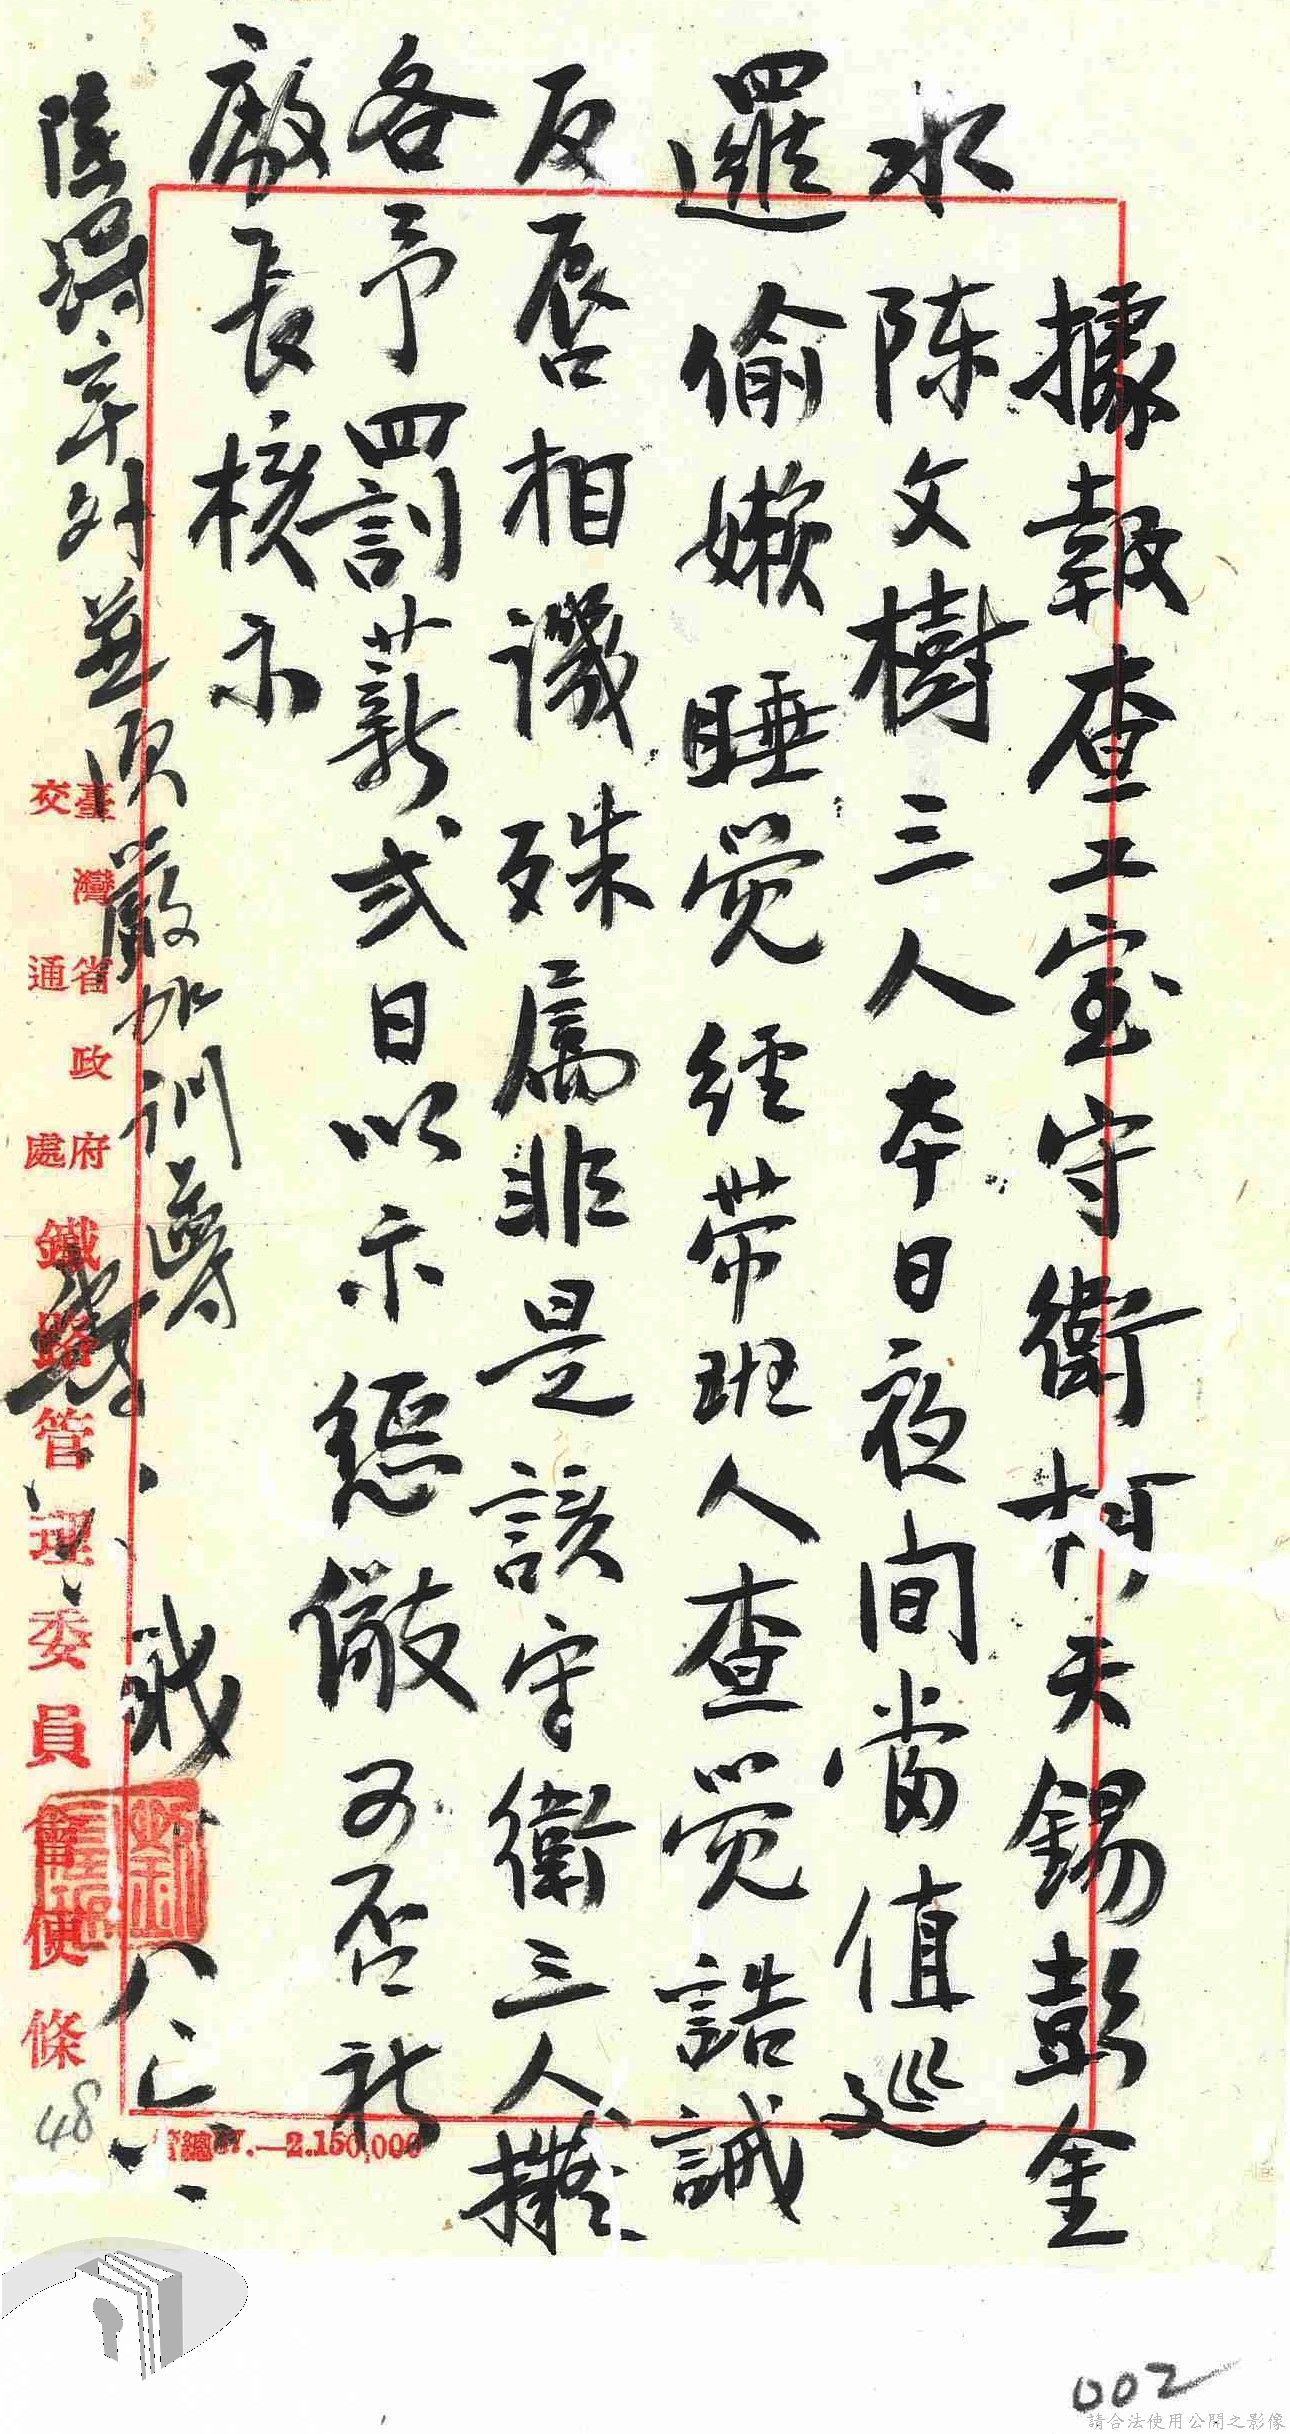 據報查工室守衛柯天錫彭金
水陈文樹三人本日夜间當值巡
邏偷嫩睡觉经带班人查觉誥誡
反唇相譏殊属非是該守衛三人擬
各予罰薪弍日以示懲儆可否祈
廠長核示
外並須嚴加訓導
臺灣省政府
交通處
鐵路管理委員會便條
48
—2.150,000
002
請合法使用公開之影像